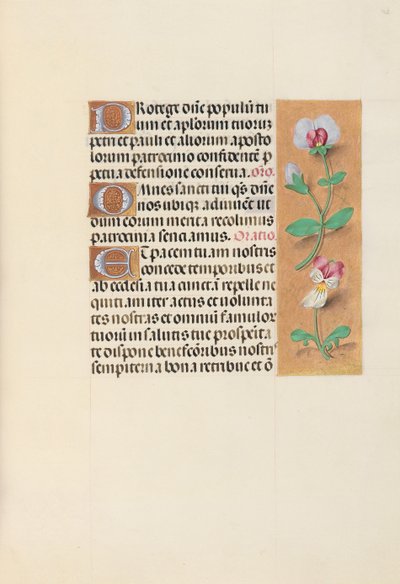 Protege dñe populũ tu
um et aplorum tuorũ
petri et pauli et aliorum aposto
lorum patrocinio confidentẽ p
petua defensione conserua. Oro.
Omnes sancti tui q̃s dñe
nos ubiq̃ adiuuẽt ut
dum eorum merita recolimus
patrocinia senciamus. Oratio.
Et pacem tuam nostris
concede temporibus et
ab ecclesia tua cunctã repelle ne
quiciam iter actus et uolunta
tes nostras et omniũ famulor
tuorũ in salutis tue prosperita
te dispone benefcõribus nostris
sempiterna bona retribue et õ